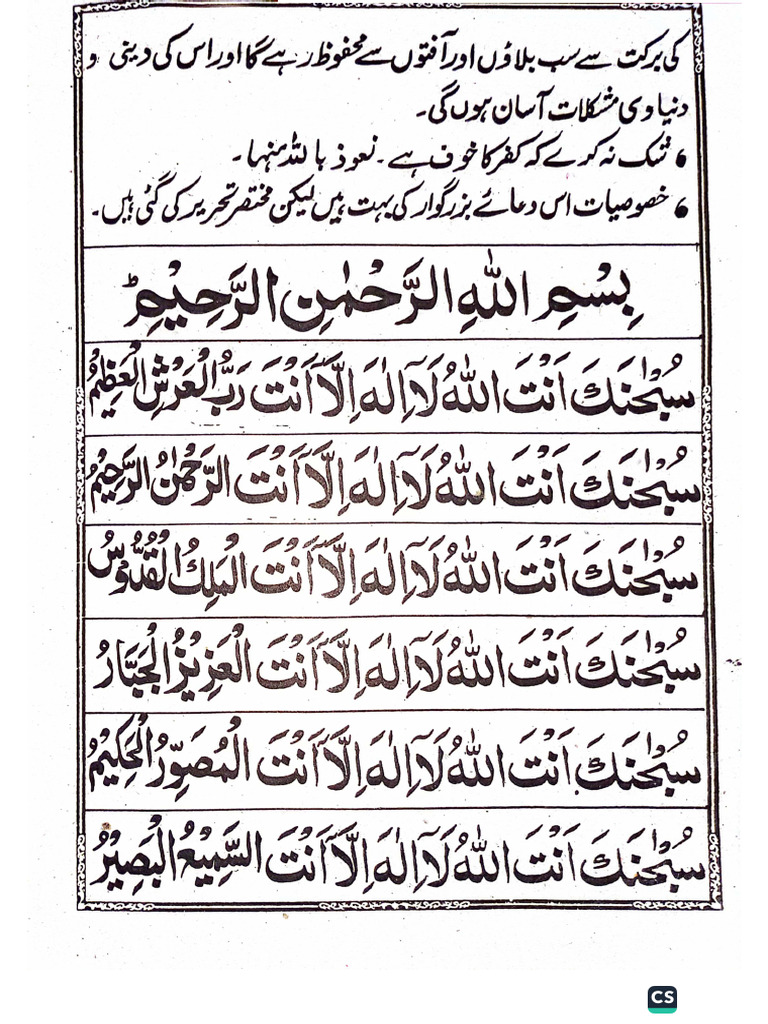 کی برکت سے سب بلاؤں اور آفتوں سے محفوظ رہے گا اور اس کی دینی و
دنیاوی مشکلات آسان ہوں گی۔
شک نہ کرے کہ کفر کا خوف ہے۔ نعوذ باللہ منہا۔
خصوصیات اس دعائے بزرگوار کی بہت ہیں لیکن مختصر تحریر کی گئی ہیں۔
بِسْمِ اللّٰهِ الرَّحْمٰنِ الرَّحِيْمِ
سُبْحٰنَكَ اَنْتَ اللّٰهُ لَآ اِلٰهَ اِلَّآ اَنْتَ رَبُّ الْعَرْشِ الْعَظِيْمُ
سُبْحٰنَكَ اَنْتَ اللّٰهُ لَآ اِلٰهَ اِلَّآ اَنْتَ الرَّحْمٰنُ الرَّحِيْمُ
سُبْحٰنَكَ اَنْتَ اللّٰهُ لَآ اِلٰهَ اِلَّآ اَنْتَ الْمَلِكُ الْقُدُّوْسُ
سُبْحٰنَكَ اَنْتَ اللّٰهُ لَآ اِلٰهَ اِلَّآ اَنْتَ الْعَزِيْزُ الْجَبَّارُ
سُبْحٰنَكَ اَنْتَ اللّٰهُ لَآ اِلٰهَ اِلَّآ اَنْتَ الْمُصَوِّرُ الْحَكِيْمُ
سُبْحٰنَكَ اَنْتَ اللّٰهُ لَآ اِلٰهَ اِلَّآ اَنْتَ السَّمِيْعُ الْبَصِيْرُ
CS